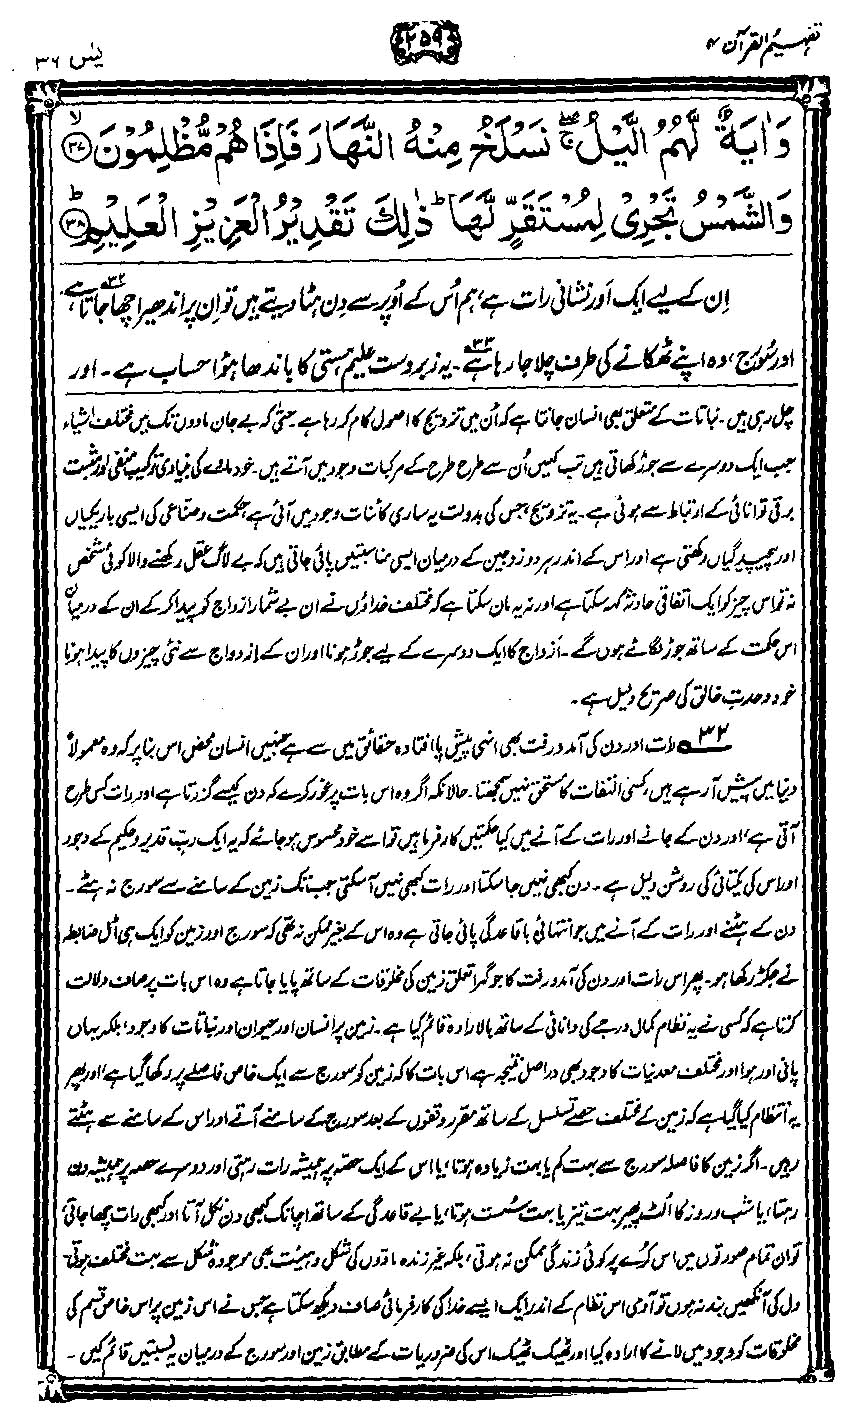 تفہیم القرآن ۴
۲۵۹
یٰسٓ ۳۶
وَاٰيَةٌ لَّهُمُ الَّيْلُ ۖۚ نَسْلَخُ مِنْهُ النَّهَارَ فَاِذَا هُمْ مُّظْلِمُوْنَ ﴿۳۷﴾ۙ
وَالشَّمْسُ تَجْرِىْ لِمُسْتَقَرٍّ لَّهَا ؕ ذٰلِكَ تَقْدِيْرُ الْعَزِيْزِ الْعَلِيْمِ ﴿۳۸﴾ؕ
اِن کے لیے ایک اَور نشانی رات ہے، ہم اُس کے اُوپر سے دِن ہٹا دیتے ہیں تو اِن پر اندھیرا چھا جاتا ہے۔۳۲
اور سُورج، وہ اپنے ٹھکانے کی طرف چلا جا رہا ہے۳۳۔ یہ زبردست علیم ہستی کا باندھا ہؤا حساب ہے۔ اور
چل رہی ہیں۔ نباتات کے متعلق بھی انسان جانتا ہے کہ اُن میں تزویج کا اصول کام کر رہا ہے حتٰی کہ بے جان مادوں تک میں مختلف اشیاء
جب ایک دوسرے سے جوڑ کھاتی ہیں تب کہیں اُن سے طرح طرح کے مرکبات وجود میں آتے ہیں۔ خود مادے کی بنیادی ترکیب منفی اور مثبت
برقی توانائی کے ارتباط سے ہوئی ہے۔ یہ تزویج، جس کی بدولت یہ ساری کائنات وجود میں آئی ہے، حکمت و صناعی کی ایسی باریکیاں
اور پیچیدگیاں رکھتی ہے اور اس کے اندر ہر دو زوجین کے درمیان ایسی مناسبتیں پائی جاتی ہیں کہ بے لاگ عقل رکھنے والا کوئی شخص
نہ تو اس چیز کو ایک اتفاقی حادثہ کہہ سکتا ہے اور نہ یہ مان سکتا ہے کہ مختلف خداؤں نے ان بے شمار ازواج کو پیدا کر کے ان کے درمیان
اس حکمت کے ساتھ جوڑ لگائے ہوں گے۔ ازواج کا ایک دوسرے کے لیے جوڑ ہونا اور ان کے ازدواج سے نئی چیزوں کا پیدا ہونا
خود وحدتِ خالق کی صریح دلیل ہے۔
۳۲ رات اور دن کی آمد و رفت بھی انہی پیش پا افتادہ حقائق میں سے ہے جنہیں انسان محض اس بنا پر کہ وہ معمولاً
دنیا میں پیش آ رہے ہیں، کسی التفات کا مستحق نہیں سمجھتا۔ حالانکہ اگر وہ اس بات پر غور کرے کہ دن کیسے گزرتا ہے اور رات کس طرح
آتی ہے، اور دن کے جانے اور رات کے آنے میں کیا حکمتیں کارفرما ہیں تو اسے خود محسوس ہو جائے کہ یہ ایک ربِّ قدیر و حکیم کے وجود
اور اس کی یکتائی کی روشن دلیل ہے۔ دن کبھی نہیں جا سکتا اور رات کبھی نہیں آ سکتی جب تک زمین کے سامنے سے سورج نہ ہٹے۔
دن کے ہٹنے اور رات کے آنے میں جو انتہائی باقاعدگی پائی جاتی ہے وہ اس کے بغیر ممکن نہ تھی کہ سورج اور زمین کو ایک ہی اٹل ضابطہ
نے جکڑ رکھا ہو۔ پھر اس رات اور دن کی آمد و رفت کا جو گہرا تعلق زمین کی مخلوقات کے ساتھ پایا جاتا ہے وہ اس بات پر صاف دلالت
کرتا ہے کہ کسی نے یہ نظام کمال درجے کی دانائی کے ساتھ بالارادہ قائم کیا ہے۔ زمین پر انسان اور حیوان اور نباتات کا وجود، بلکہ یہاں
پانی اور ہوا اور مختلف معدنیات کا وجود بھی دراصل نتیجہ ہے اس بات کا کہ زمین کو سورج سے ایک خاص فاصلے پر رکھا گیا ہے، اور پھر
یہ انتظام کیا گیا ہے کہ زمین کے مختلف حصے تسلسل کے ساتھ مقرر وقفوں کے بعد سورج کے سامنے آتے اور اس کے سامنے سے ہٹتے
رہیں۔ اگر زمین کا فاصلہ سورج سے بہت کم یا بہت زیادہ ہوتا، یا اس کے ایک حصہ پر ہمیشہ رات رہتی اور دوسرے حصہ پر ہمیشہ دن
رہتا، یا شب و روز کا اُلٹ پھیر بہت تیز یا بہت سُست ہوتا، یا بے قاعدگی کے ساتھ اچانک کبھی دن نکل آتا اور کبھی رات چھا جاتی،
تو ان تمام صورتوں میں اس کُرے پر کوئی زندگی ممکن نہ ہوتی، بلکہ غیر زندہ مادّوں کی شکل و ہیئت بھی موجودہ شکل سے بہت مختلف ہوتی۔
دل کی آنکھیں بند نہ ہوں تو آدمی اس نظام کے اندر ایک ایسے خدا کی کارفرمائی صاف دیکھ سکتا ہے جس نے اس زمین پر اس خاص قسم کی
مخلوقات کو وجود میں لانے کا ارادہ کیا اور ٹھیک ٹھیک اس کی ضروریات کے مطابق زمین اور سورج کے درمیان یہ نسبتیں قائم کیں۔